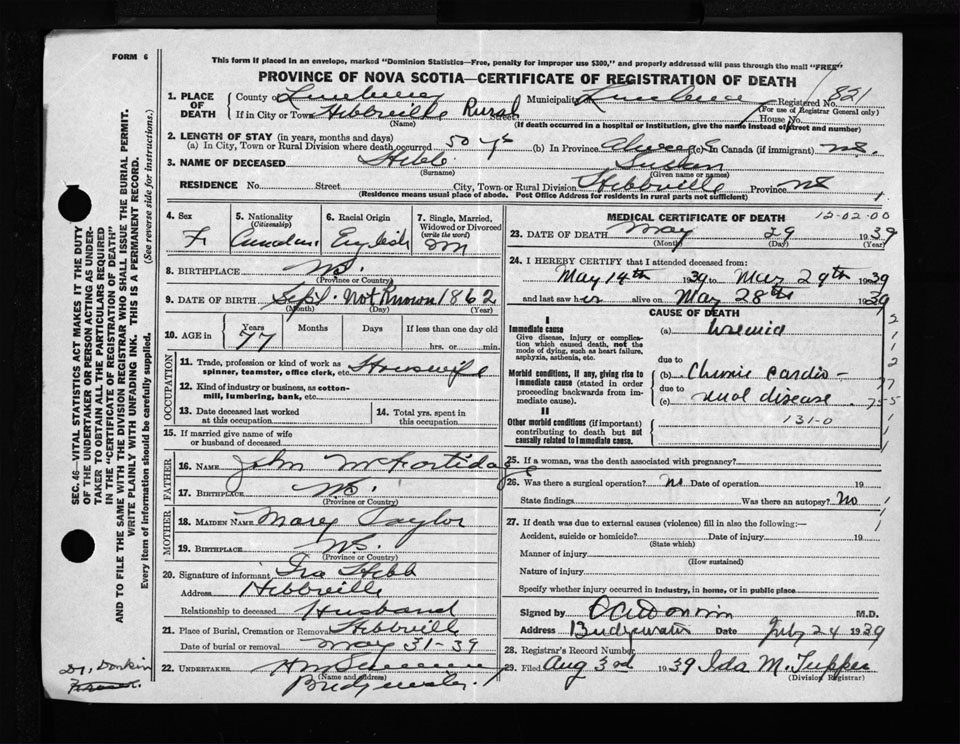 FORM 6
This form if placed in an envelope, marked "Dominion Statistics—Free, penalty for improper use $300," and properly addressed will pass through the mail "FREE"
PROVINCE OF NOVA SCOTIA—CERTIFICATE OF REGISTRATION OF DEATH
821
1. PLACE OF DEATH
County of Lunenburg Municipality Lunenburg Registered No.
(For use of Registrar General only)
If in City or Town Hebbville Rural Street House No.
(Name) (If death occurred in a hospital or institution, give the name instead of street and number)
2. LENGTH OF STAY (in years, months and days)
(a) In City, Town or Rural Division where death occurred 50 yrs (b) In Province Always (c) In Canada (if immigrant) N.S.
3. NAME OF DECEASED Hebb
(Surname) (Given name or names)
RESIDENCE No. Street City, Town or Rural Division Hebbville Province NS
(Residence means usual place of abode. Post Office Address for residents in rural parts not sufficient) 1
4. Sex
F
5. Nationality
(Citizenship)
Canadian
6. Racial Origin
English
7. Single, Married, Widowed or Divorced
(write the word)
M
8. BIRTHPLACE N.S.
(Province or Country)
9. DATE OF BIRTH Sept. Not Known 1862
(Month) (Day) (Year)
10. AGE in
Years Months Days If less than one day old
77 hrs. or min.
OCCUPATION
11. Trade, profession or kind of work as spinner, teamster, office clerk, etc. Housewife
12. Kind of industry or business, as cotton-mill, lumbering, bank, etc.
13. Date deceased last worked at this occupation
14. Total yrs. spent in this occupation
15. If married give name of wife or husband of deceased
FATHER
16. NAME John
17. BIRTHPLACE N.S.
(Province or Country)
MOTHER
18. MAIDEN NAME Mary Taylor
19. BIRTHPLACE N.S.
(Province or Country)
20. Signature of informant Ira Hebb
Address Hebbville
Relationship to deceased Husband
21. Place of Burial, Cremation or Removal Hebbville
Date of burial or removal May 31-39
22. UNDERTAKER
(Name and address)
Bridgewater
MEDICAL CERTIFICATE OF DEATH 12-02-00
23. DATE OF DEATH May 29 1939
(Month) (Day) (Year)
24. I HEREBY CERTIFY that I attended deceased from:
May 14th 1939 to May 29th 1939
and last saw her alive on May 28th 1939
CAUSE OF DEATH
I
Immediate cause
Give disease, injury or complication which caused death, not the mode of dying, such as heart failure, asphyxia, asthenia, etc.
(a) Uremia
due to
Morbid conditions, if any, giving rise to immediate cause (stated in order proceeding backwards from immediate cause).
(b) Chronic cardio-
due to
(c) renal disease
II
Other morbid conditions (if important) contributing to death but not causally related to immediate cause.
131-0
25. If a woman, was the death associated with pregnancy?
26. Was there a surgical operation? No Date of operation 19
State findings Was there an autopsy? No
27. If death was due to external causes (violence) fill in also the following:—
Accident, suicide or homicide? Date of injury 19
(State which)
Manner of injury
(How sustained)
Nature of injury
Specify whether injury occurred in industry, in home, or in public place
Signed by Donkin M.D.
Address Bridgewater Date July 24 1939
28. Registrar's Record Number
29. Filed Aug 3rd 1939 Ida M. Tupper
(Division Registrar)
SEC. 46—VITAL STATISTICS ACT MAKES IT THE DUTY OF THE UNDERTAKER OR PERSON ACTING AS UNDERTAKER TO OBTAIN ALL THE PARTICULARS REQUIRED IN THE "CERTIFICATE OF REGISTRATION OF DEATH" AND TO FILE THE SAME WITH THE DIVISION REGISTRAR WHO SHALL ISSUE THE BURIAL PERMIT.
WRITE PLAINLY WITH UNFADING INK. THIS IS A PERMANENT RECORD.
Every item of information should be carefully supplied. (See reverse side for instructions.)
Dr. Donkin